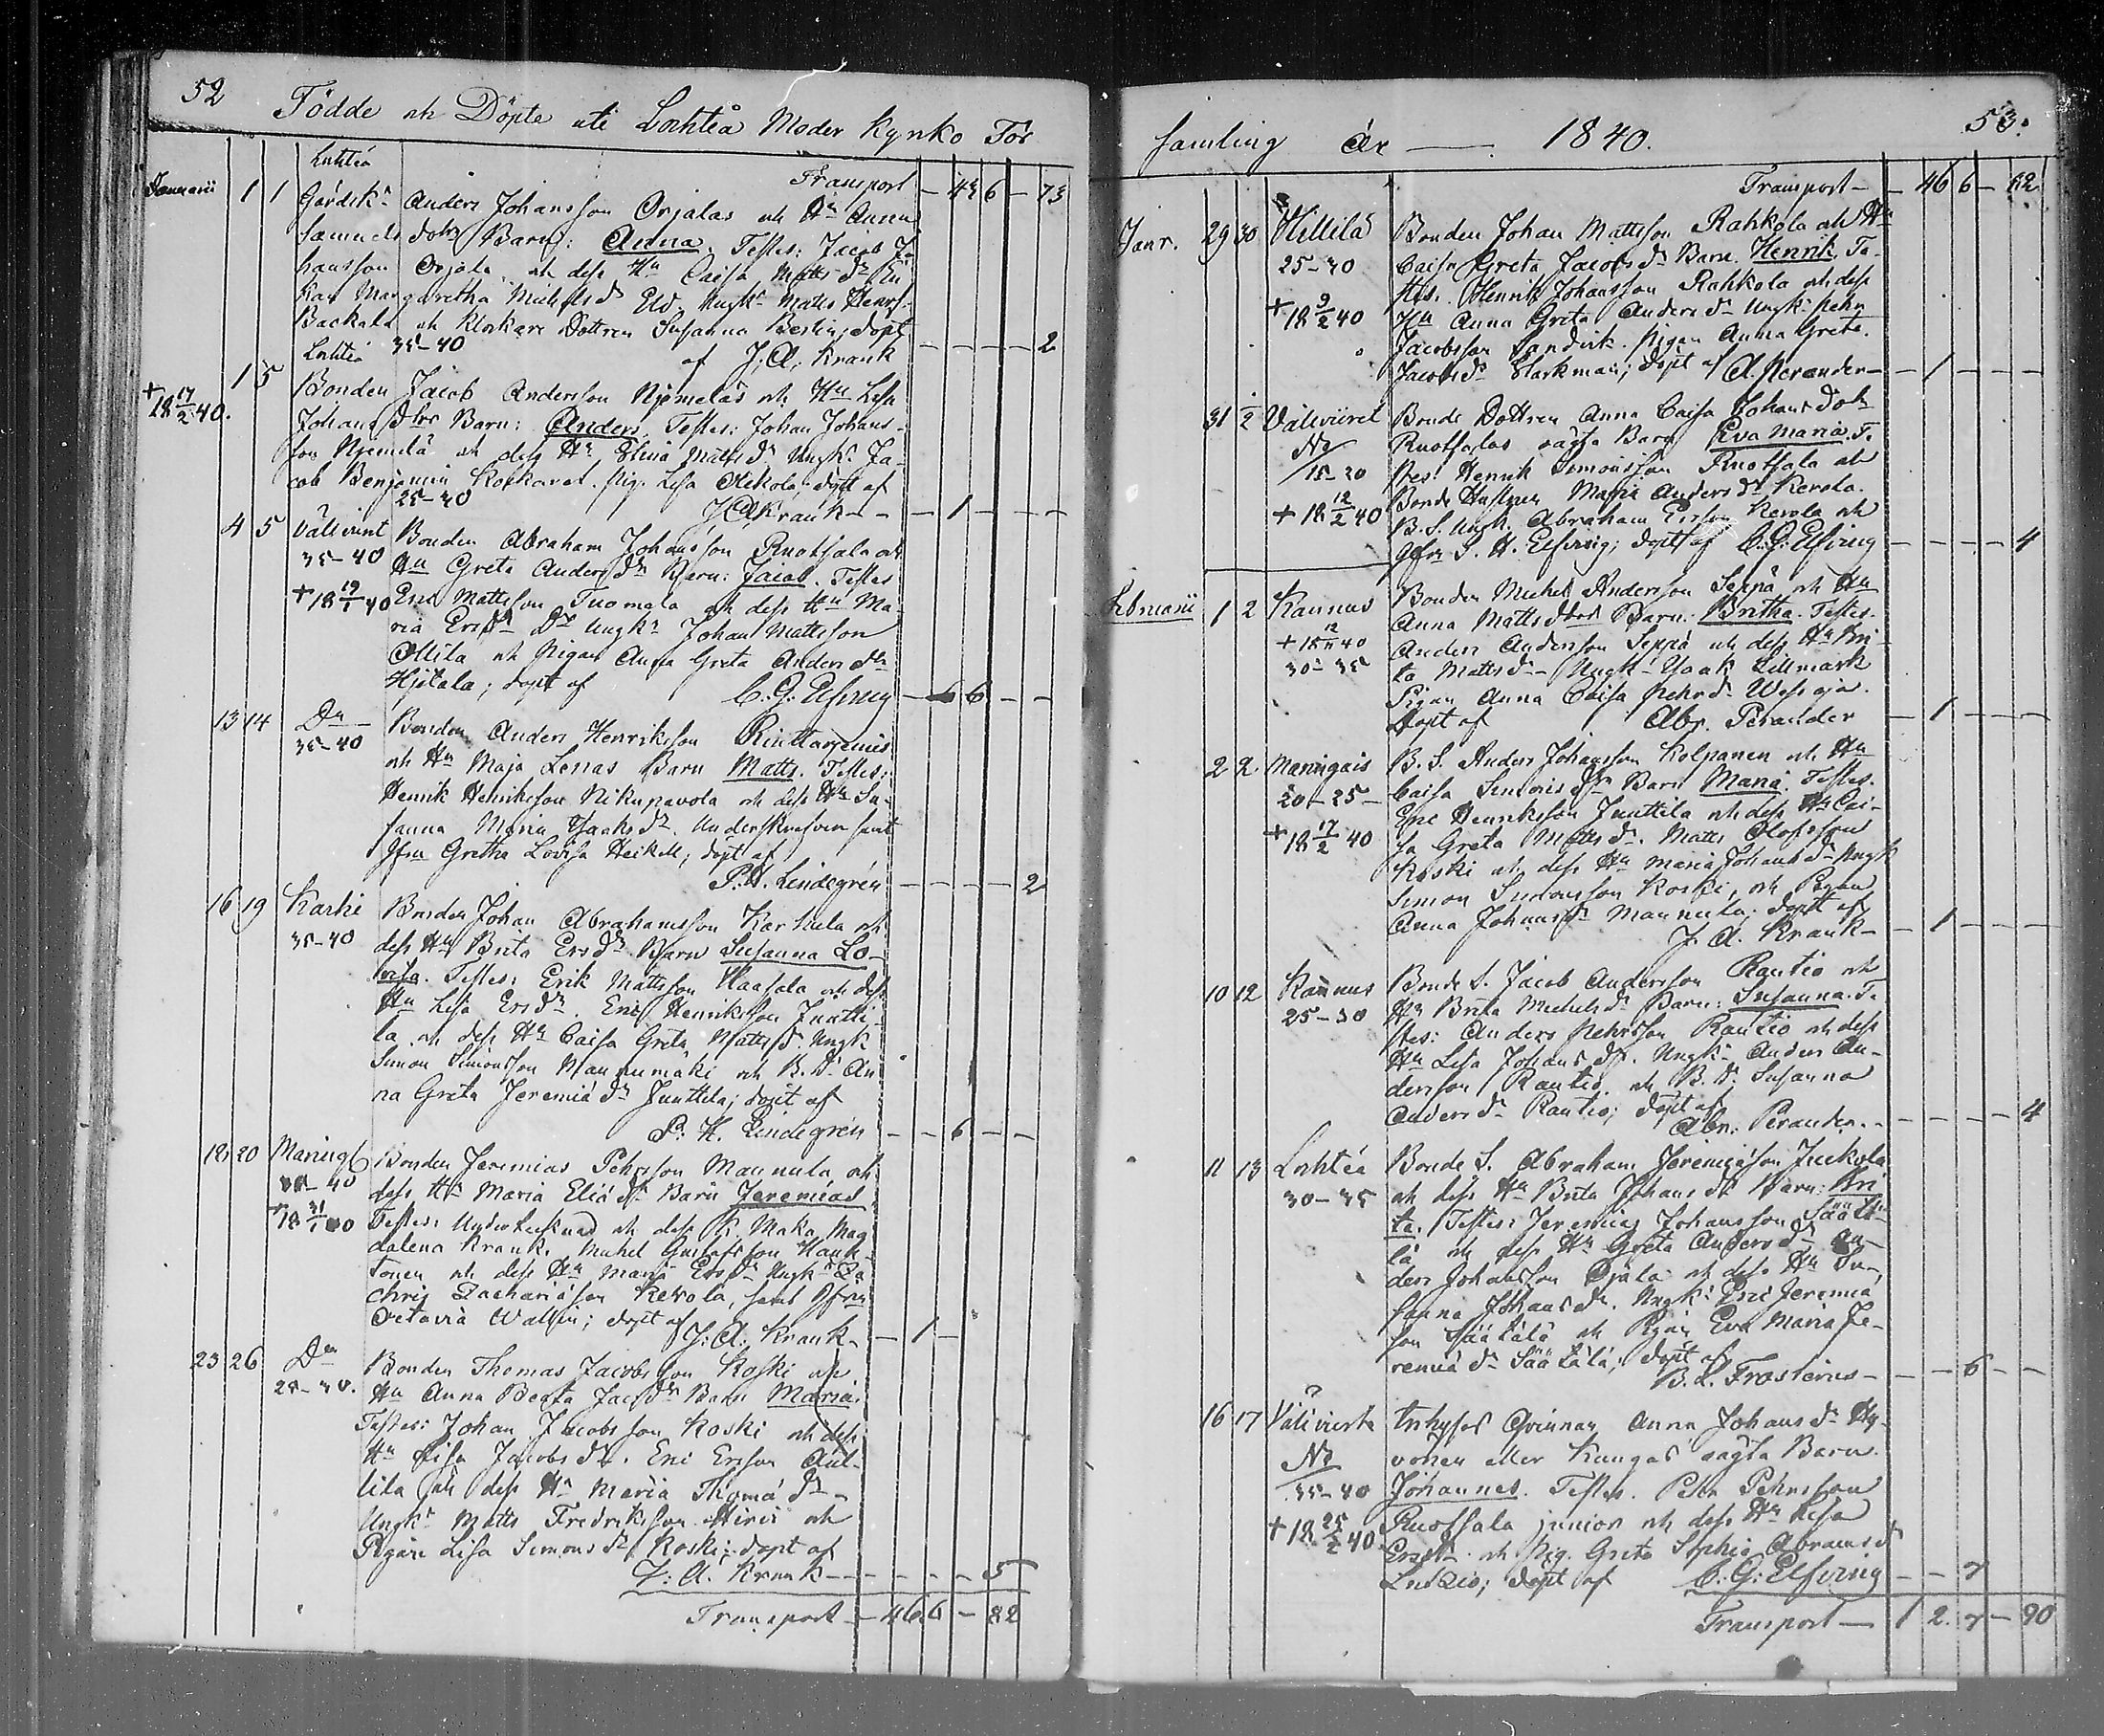 52
Födde och Döpte uti Lochteå Moder Kyrko För
Lochteå
Transport — 43 6 — 73
Januarii 1 1 Gårdsk. Anders Johansson Orjalas och Hu Anna
Samuels dotr Barn: Anna. Testes: Jacob Jo
hansson Orjala och dess Hu Caisa Matts dr En
kan Margaretha Michelsd Eld. Ungk. Matts Henrs.
Backala och Klockare Dottren Susanna Berlin; döpt
Lochteå 35–40 af J. A. Krank — — — — 2
1 5 Bonden Jacob Andersson Njemeläs och Hu Lisa
+ 18 17/2 40. Johans dtrs Barn: Anders. Testes: Johan Johans-
son Njemelä och dess Hu Stina Matts dr Ungk. Ja-
cob Benjamin Korkavat. Pig. Lisa Olikola, döpt af
25–40 J A Krank – – – 1 – – –
4 5 Välivirret Bonden Abraham Johansson Ruotsala och
35–40 Hu Greta Anders dr Barn: Jacob. Testes
+ 18 19/1 40 Eric Mattsson Tuomala och dess Hu Ma-
ria Ers dr Dr Ungk. Johan Mattsson
Ollila och Pigan Anna Greta Anders dr
Hjitala; döpt af C. G. Elfving — 6 — —
13 14 Do — Bonden Anders Henriksson Rinttaniemis
35–40 och Hu Maja Lenas Barn Matts. Testes:
Henrik Henriksson Nikupavola och dess Hu Su-
sanna Maria Isaks dr. Underskrefven samt
Jfru Gretha Lovisa Heikell; döpt af
P. H. Lindegrén — — — — 2
16 19 Karhi Bonden Johan Abrahamsson Karhula och
35–40 dess Hu Brita Ers dr Barn Susanna Lo-
visa. Testes: Erik Mattsson Haasala och dess
Hu Lisa Ers dr. Eric Henriksson Juntti-
la och dess Hu Caisa Greta Matts dr. Ungk
Simon Simonsson Mannumäki och B. Dr. An
na Greta Jeremiä dr Junttila; döpt af
P: H. Lindegrén — — 6 — —
18 20 Maring Bonden Jeremias Pehrsson Mannula och
40 dess Hu Maria Eliä dr Barn Jeremias
+ 18 31/1 40 Testes: Undertecknad och dess K. Maka Mag
dalena Krank. Michel Gustafsson Hauk-
tonen och dess Hu Maria Ers dr Ungk. Za
chris Zachariäson Kekola, samt Jfru
Octavia Wallin; döpt af J: A. Krank — 1 —
23 26 Do Bonden Thomas Jacobsson Koski och
25–30. Hu Anna Beata Jacs dr Barn Maria.
Testes: Johan Jacobsson Koski och dess
Hu Lisa Jacobs dr. Eric Ersson Aul-
lila och dess Hu Maria Thomä dr –
Ungk. Matts Fredriksson Hirvi och
Pigan Lisa Simons dr Koski; döpt af
J: A. Krank — — — — 5
Transport — 46 6 — 82
53.
samling År — 1840.
Transport — — 46 6 — 82
Janr. 29 30 Hillilä Bonden Johan Mattsson Rahkola och Hu
25–30 Caisa Greta Jacobs dr Barn. Henrik. Te-
+ 18 9/2 40 stes. Henrik Johansson Rahkola och dess
Hu Anna Greta Anders dr Ungk. Pehr
Jacobsson Sandvik. Pigan Anna Greta.
Jacobs dr Starkman; döpt af A. Perander — 1 — — —
31 1/2 Väliviiret Bonde Dottren Anna Caisa Johans dotr
No Ruotsalas oägta Barn Eva Maria. Te
15–20 stes: Henrik Simonsson Ruotsala och
+ 18 12/2 40 Bonde Hustrun Maria Anders dr Kerola.
B. S. Ungk. Abraham Ersson Kerola och
Jfru S. H. Elfving; döpt af C. G. Elfving — — — — 4
Februarii 1 2 Kannus Bonden Michel Andersson Seppä och Hu
+ 18 12/11 40 Anna Matts dtrs Barn: Britha. Testes.
30–35 Anders Andersson Seppä och dess Hu Bri-
ta Matts dr – Ungk. Isaak Lillmark
Pigan Anna Caisa Pehrs dr Wessoja.
Döpt af Abr. Perander — 1 — — —
2 2. Maringais B. S. Anders Johansson Kolpanen och Hu
20–25 – Caisa Simons dr Barn Maria. Testes.
+ 18 17/2 40 Eric Henriksson Junttila och dess Hu Cai-
sa Greta Matts dr. Matts Olofsson
Koski och dess Hu Maria Johans dr Ungk
Simon Simonsson Koski, och Pigan
Anna Johans dr Mannula; döpt af
J. A. Krank — 1 — — —
10 12 Kannus Bonde S. Jacob Andersson Rautio och
25–30 Hu Brita Michels dr Barn: Susanna. Te
stes: Anders Pehrsson Rautio och dess
Hu Lisa Johans dr. Ungk. Anders An-
dersson Rautio, och B. dr Susanna
Anders dr Rautio; döpt af
Abr: Perander. — — — — 4
11 13 Lochteå Bonde S. Abraham Jeremiäson Juckola
30–35 och dess Hu Brita Johans dr Barn: Bri
ta. Testes: Jeremias Johansson Säätä-
lä och dess Hu Greta Anders dr An-
ders Johansson Ojala och dess Hu Su-
sanna Johans dr. Ungk. Eric Jeremiä
son Säätälä och Pigan Eva Maria Je-
remiä dr Säätälä; döpt af
B. L. Frosterus — — — 6 — —
16 17 Välivierta Inhyses Qvinnan Anna Johans dr Hy-
No vönen eller Kangas oägta Barn
35–40 Johannes. Testes. Pehr Pehrsson
+ 18 25/2 40. Ruotsala junior och dess Hu Lisa
Ers dr och Pig. Greta Sophia Abrams dr
döpt af C. G: Elfving — — 7
Transport — 1 2. 7 — 90